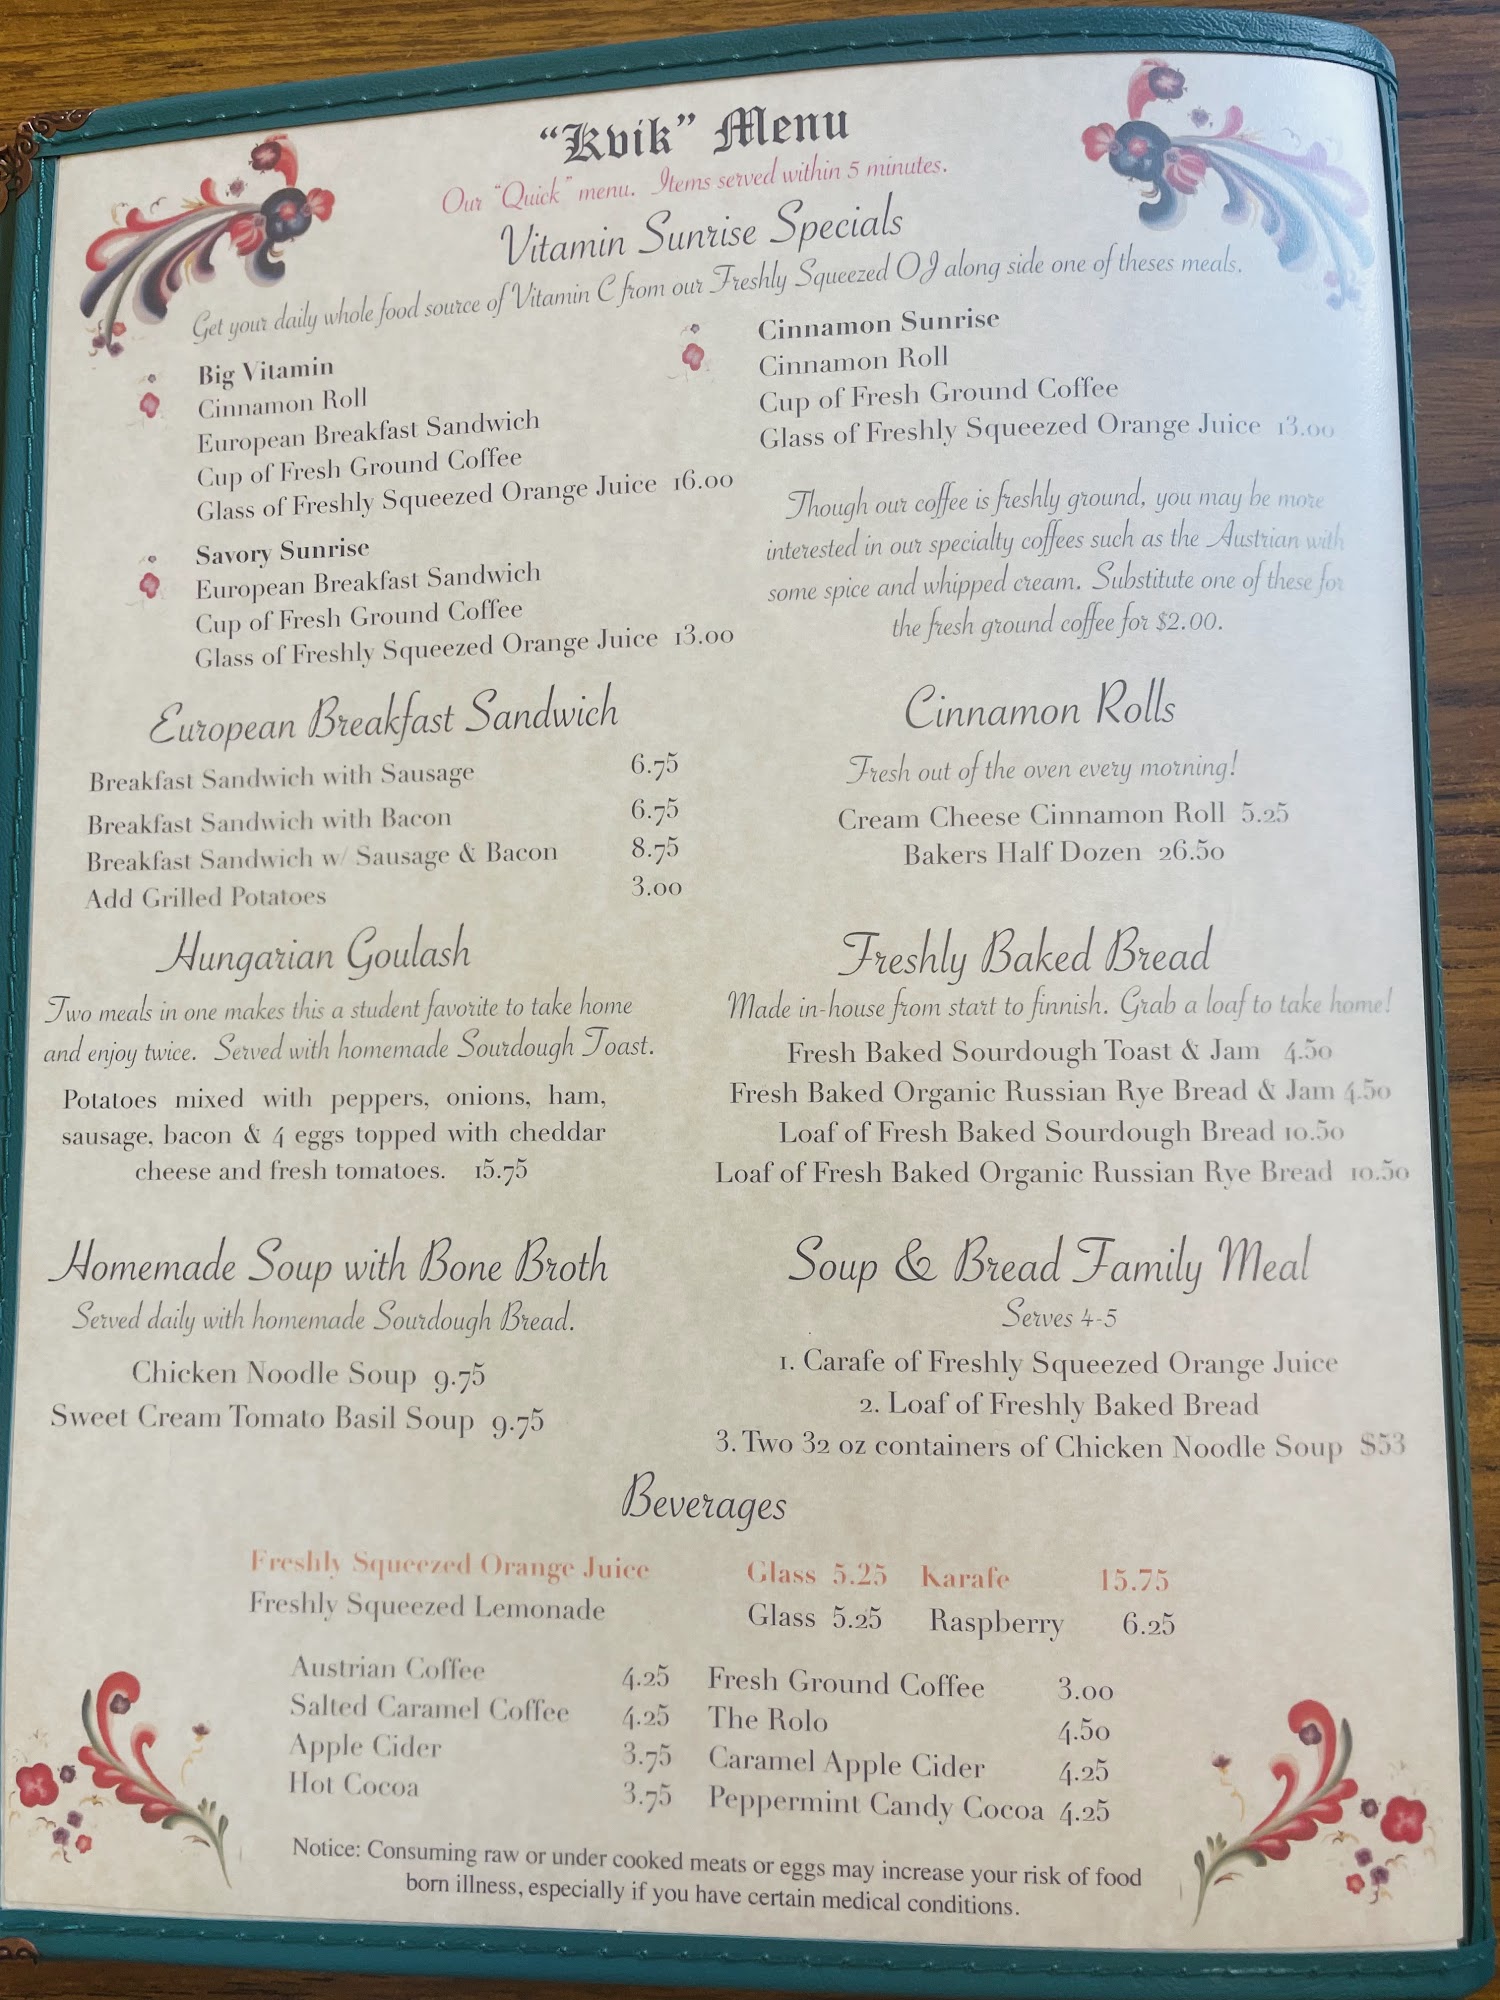 “Kvik” Menu
Our “Quick” menu. Items served within 5 minutes.
Vitamin Sunrise Specials
Get your daily whole food source of Vitamin C from our Freshly Squeezed OJ along side one of theses meals.
Big Vitamin
Cinnamon Roll
European Breakfast Sandwich
Cup of Fresh Ground Coffee
Glass of Freshly Squeezed Orange Juice 16.00
Savory Sunrise
European Breakfast Sandwich
Cup of Fresh Ground Coffee
Glass of Freshly Squeezed Orange Juice 13.00
Cinnamon Sunrise
Cinnamon Roll
Cup of Fresh Ground Coffee
Glass of Freshly Squeezed Orange Juice 13.00
Though our coffee is freshly ground, you may be more
interested in our specialty coffees such as the Austrian with
some spice and whipped cream. Substitute one of these for
the fresh ground coffee for $2.00.
European Breakfast Sandwich
Breakfast Sandwich with Sausage 6.75
Breakfast Sandwich with Bacon 6.75
Breakfast Sandwich w/ Sausage & Bacon 8.75
Add Grilled Potatoes 3.00
Cinnamon Rolls
Fresh out of the oven every morning!
Cream Cheese Cinnamon Roll 5.25
Bakers Half Dozen 26.50
Hungarian Goulash
Two meals in one makes this a student favorite to take home
and enjoy twice. Served with homemade Sourdough Toast.
Potatoes mixed with peppers, onions, ham,
sausage, bacon & 4 eggs topped with cheddar
cheese and fresh tomatoes. 15.75
Freshly Baked Bread
Made in-house from start to finnish. Grab a loaf to take home!
Fresh Baked Sourdough Toast & Jam 4.50
Fresh Baked Organic Russian Rye Bread & Jam 4.50
Loaf of Fresh Baked Sourdough Bread 10.50
Loaf of Fresh Baked Organic Russian Rye Bread 10.50
Homemade Soup with Bone Broth
Served daily with homemade Sourdough Bread.
Chicken Noodle Soup 9.75
Sweet Cream Tomato Basil Soup 9.75
Soup & Bread Family Meal
Serves 4-5
1. Carafe of Freshly Squeezed Orange Juice
2. Loaf of Freshly Baked Bread
3. Two 32 oz containers of Chicken Noodle Soup $53
Beverages
Freshly Squeezed Orange Juice Glass 5.25 Karafe 15.75
Freshly Squeezed Lemonade Glass 5.25 Raspberry 6.25
Austrian Coffee 4.25 Fresh Ground Coffee 3.00
Salted Caramel Coffee 4.25 The Rolo 4.50
Apple Cider 3.75 Caramel Apple Cider 4.25
Hot Cocoa 3.75 Peppermint Candy Cocoa 4.25
Notice: Consuming raw or under cooked meats or eggs may increase your risk of food
born illness, especially if you have certain medical conditions.